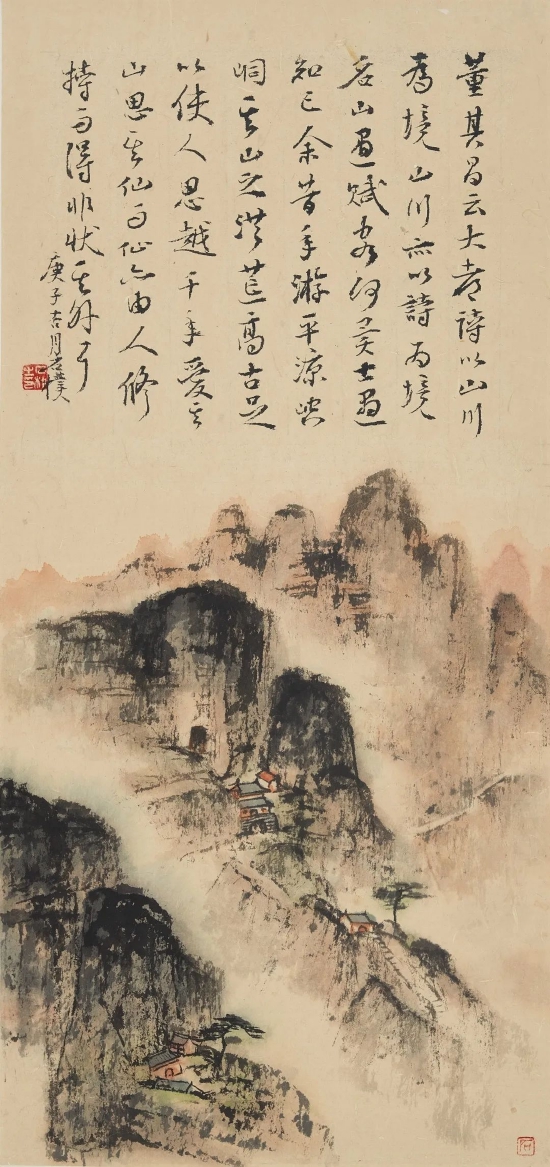 董其昌云大都詩以山川
為境山川亦以詩為境
名山遇賦客何異士遇
知己余昔年游平涼崆
峒其山之洪荒高古足
以使人思越千年愛其
山思其仙而仙亦由人修
持而得非狀其外耳
庚子吉月石樸
石